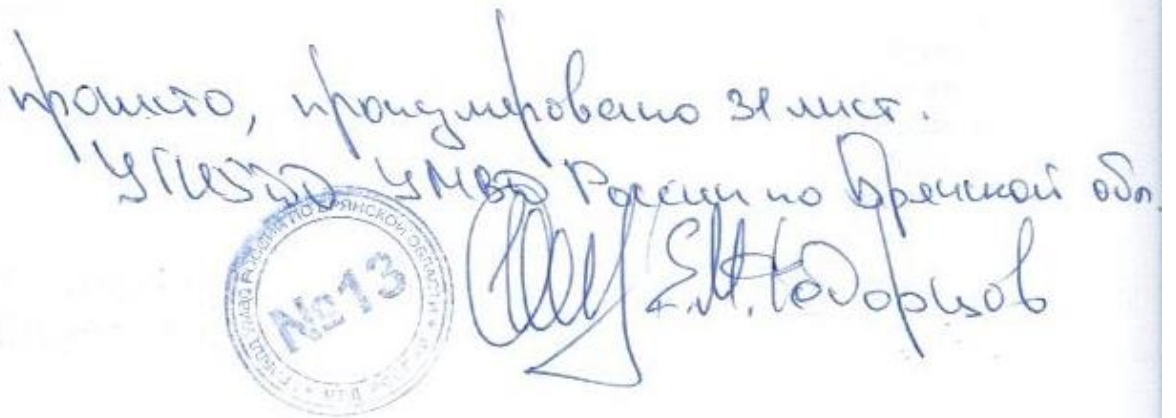 прошито, пронумеровано 31 лист.
УГИБДД УМВД России по Брянской обл.
УМВД РОССИИ ПО БРЯНСКОЙ ОБЛАСТИ
№13
Е.М.